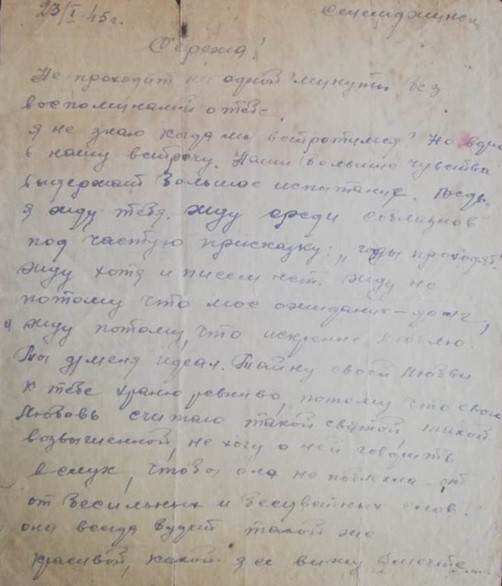 23/I 45г.
Сережа!
Не проходит ни одной минуты без
воспоминаний о тебе.
Я не знаю когда мы встретимся? Но верю
в нашу встречу. Наши большие чувства
выдержат большое испытание. Ведь
я жду тебя. Жду среди соблазнов
под частую присказку: „годы проходят"
Жду хотя и писем нет. Жду не
потому что мое ожидание – долг,
а жду потому, что искренне люблю.
Ты для меня идеал. Тайну своей любви
к тебе храню ревниво, потому что свою
любовь считаю такой святой, такой
возвышенной, не хочу о ней говорить
вслух, чтобы она не от
от бесильных и слов.
она всегда будет такой же
красивой, какой я ее вижу в мечте...